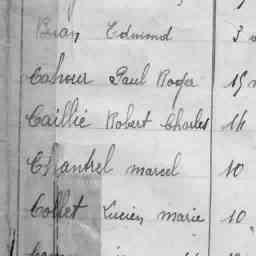 Edmond 3
Cahour Paul Roger 15
Caillie Robert Charles 16
Chantrel marcel 10
Collet Lucien marie 10